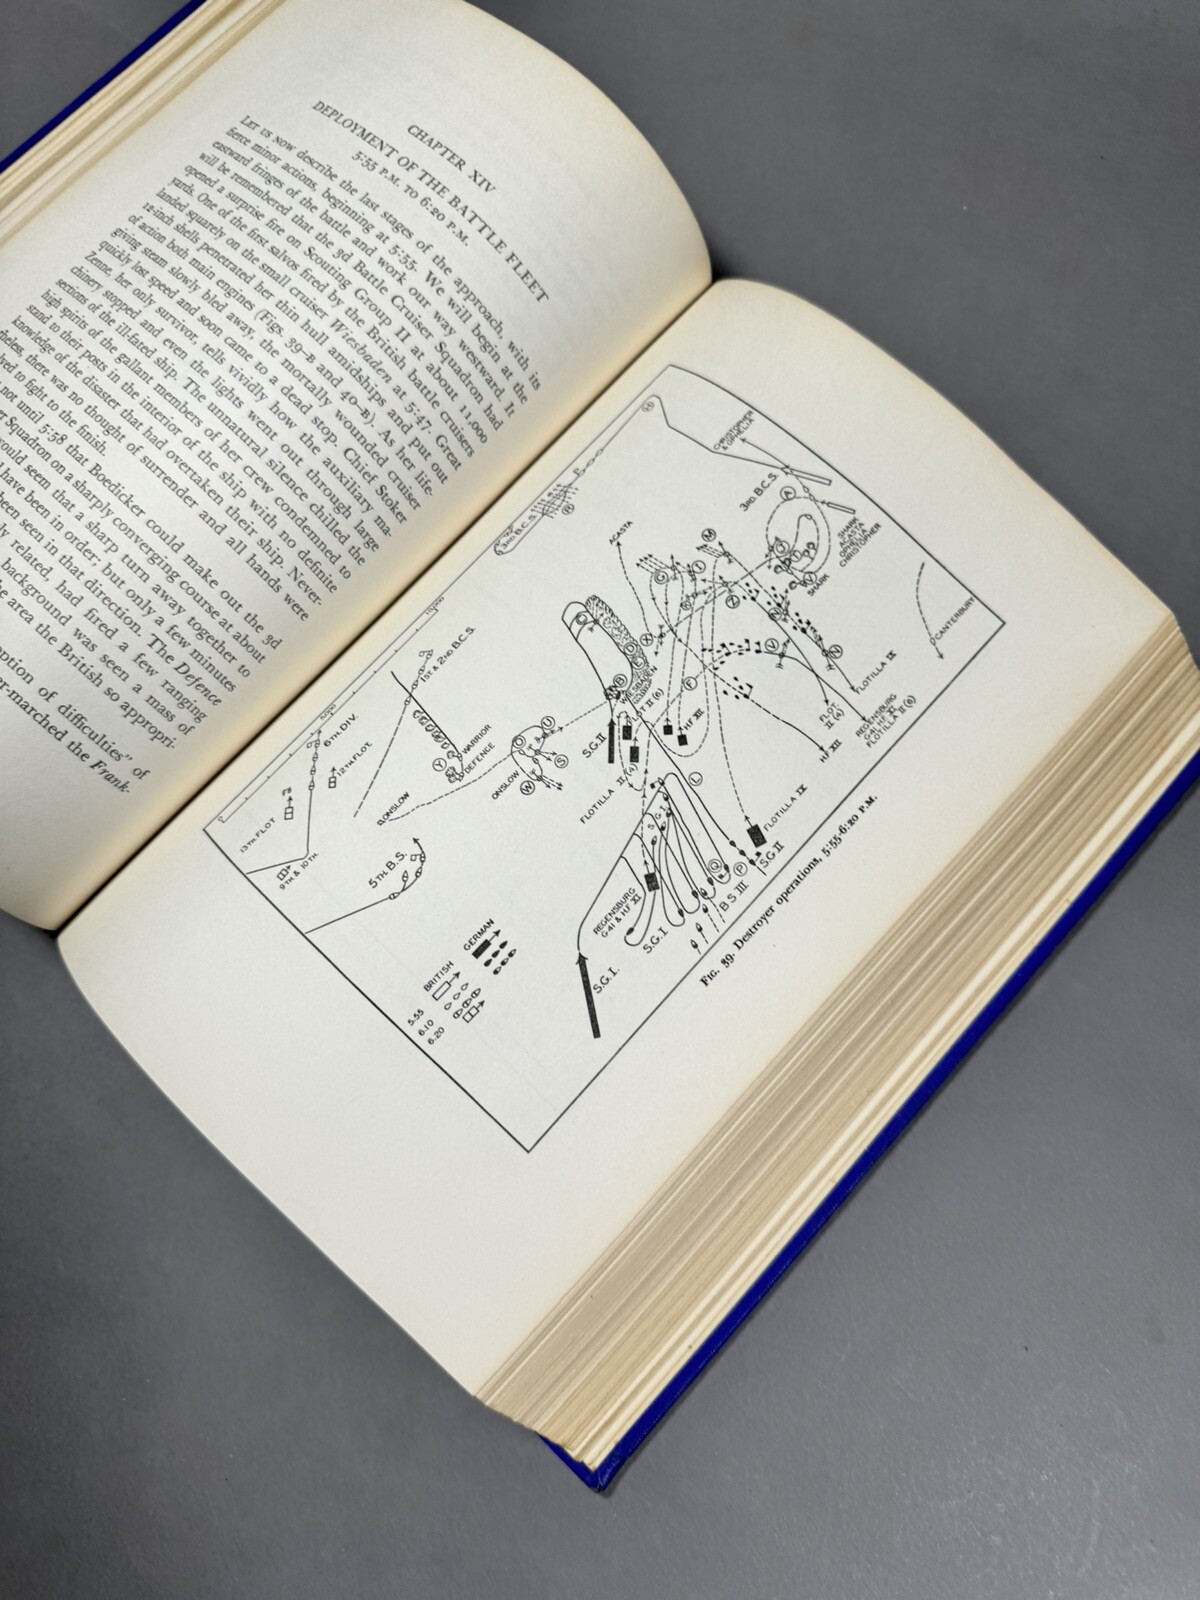 CHAPTER XIV
DEPLOYMENT OF THE BATTLE FLEET
5:55 P.M. TO 6:20 P.M.
LET US NOW describe the last stages of the approach, with its
fierce minor actions, beginning at 5:55. We will begin at the
eastward fringes of the battle and work our way westward. It
will be remembered that the 3d Battle Cruiser Squadron had
opened a surprise fire on Scouting Group II at about 11,000
yards. One of the first salvos fired by the British battle cruisers
landed squarely on the small cruiser Wiesbaden at 5:47. Great
12-inch shells penetrated her thin hull amidships and put out
of action both main engines (Figs. 39-B and 40-B). As her life-
giving steam slowly bled away, the mortally wounded cruiser
quickly lost speed and soon came to a dead stop. Chief Stoker
Zenne, her only survivor, tells vividly how the auxiliary ma-
chinery stopped and even the lights went out through large
sections of the ill-fated ship. The unnatural silence chilled the
high spirits of the gallant members of her crew condemned to
stand to their posts in the interior of the ship with no definite
knowledge of the disaster that had overtaken their ship. Never-
theless, there was no thought of surrender and all hands were
to fight to the finish.
not until 5:58 that Boedicker could make out the 3d
Squadron on a sharply converging course at about
would seem that a sharp turn away together to
have been in order; but only a few minutes
been seen in that direction. The Defence
related, had fired a few ranging
background was seen a mass of
area the British so appropri-
of difficulties" of
marched the Frank-
CHRISTOPHER
& OPHELIA
3RD B.C.S.
SHARK
ACASTA
OPHELIA
CHRISTOPHER
SHARK
CANTERBURY
3RD B.C.S.
ACASTA
WIESBADEN
1ST & 2ND B.C.S.
6TH DIV.
12TH FLOT.
13TH FLOT
9TH & 10TH
WARRIOR
DEFENCE
ONSLOW
ONSLOW
5TH B.S.
S.G. II
II (6)
HF XII
FLOTILLA II (4)
FLOTILLA IX
FLOT.
II (4)
HF XII
REGENSBURG
G41 HF XI
FLOTILLA II (6)
FLOTILLA IX
S.G. II
B S III
S G I
S.G. I
REGENSBURG
G-41 & HF XI
S.G. I.
BRITISH GERMAN
5.55
6.10
6.20
FIG. 39. Destroyer operations, 5:55-6:20 P.M.